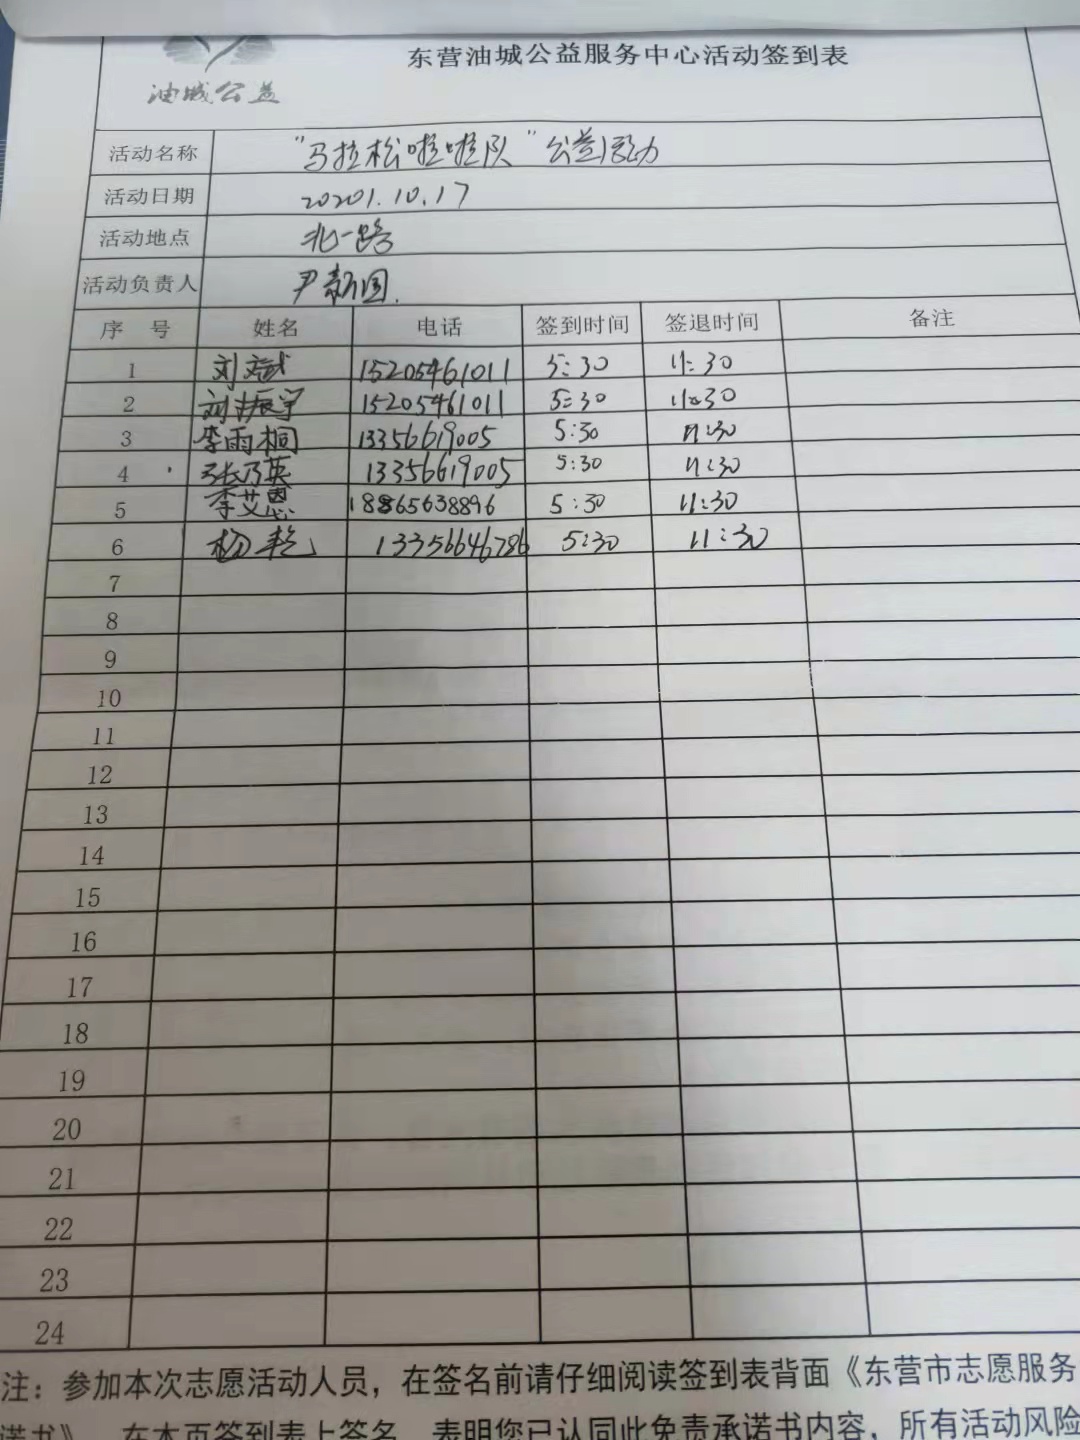 东营油城公益服务中心活动签到表
油城公益
活动名称 "马拉松啦啦队"公益活动
活动日期 20201.10.17
活动地点 北一路
活动负责人 尹新国.
序 号 姓名 电话 签到时间 签退时间 备注
1 刘斌 15205461011 5:30 11:30
2 刘振宇 15205461011 5:30 11:30
3 李雨桐 13356619005 5:30 11:30
4 张乃英 13356619005 5:30 11:30
5 李艾恩 18865638896 5:30 11:30
6 杨乾 13356646786 5:30 11:30
7
8
9
10
11
12
13
14
15
16
17
18
19
20
21
22
23
24
注：参加本次志愿活动人员，在签名前请仔细阅读签到表背面《东营市志愿服务
诺书》，在本页签到表上签名，表明您已认同此免责承诺书内容，所有活动风险